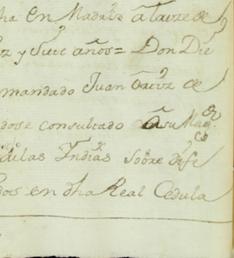 ha en Madrid â treze de
z y siete años = Don Die
omandado Juan Ortiz de
dose consultado â su Mag.
de las Indias Sobre dife
dos en dha Real Cedula